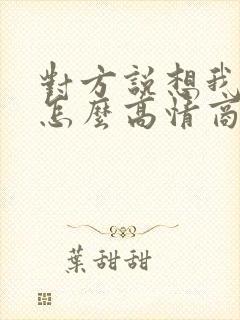 對方說想我
怎麼高情商
葉甜甜